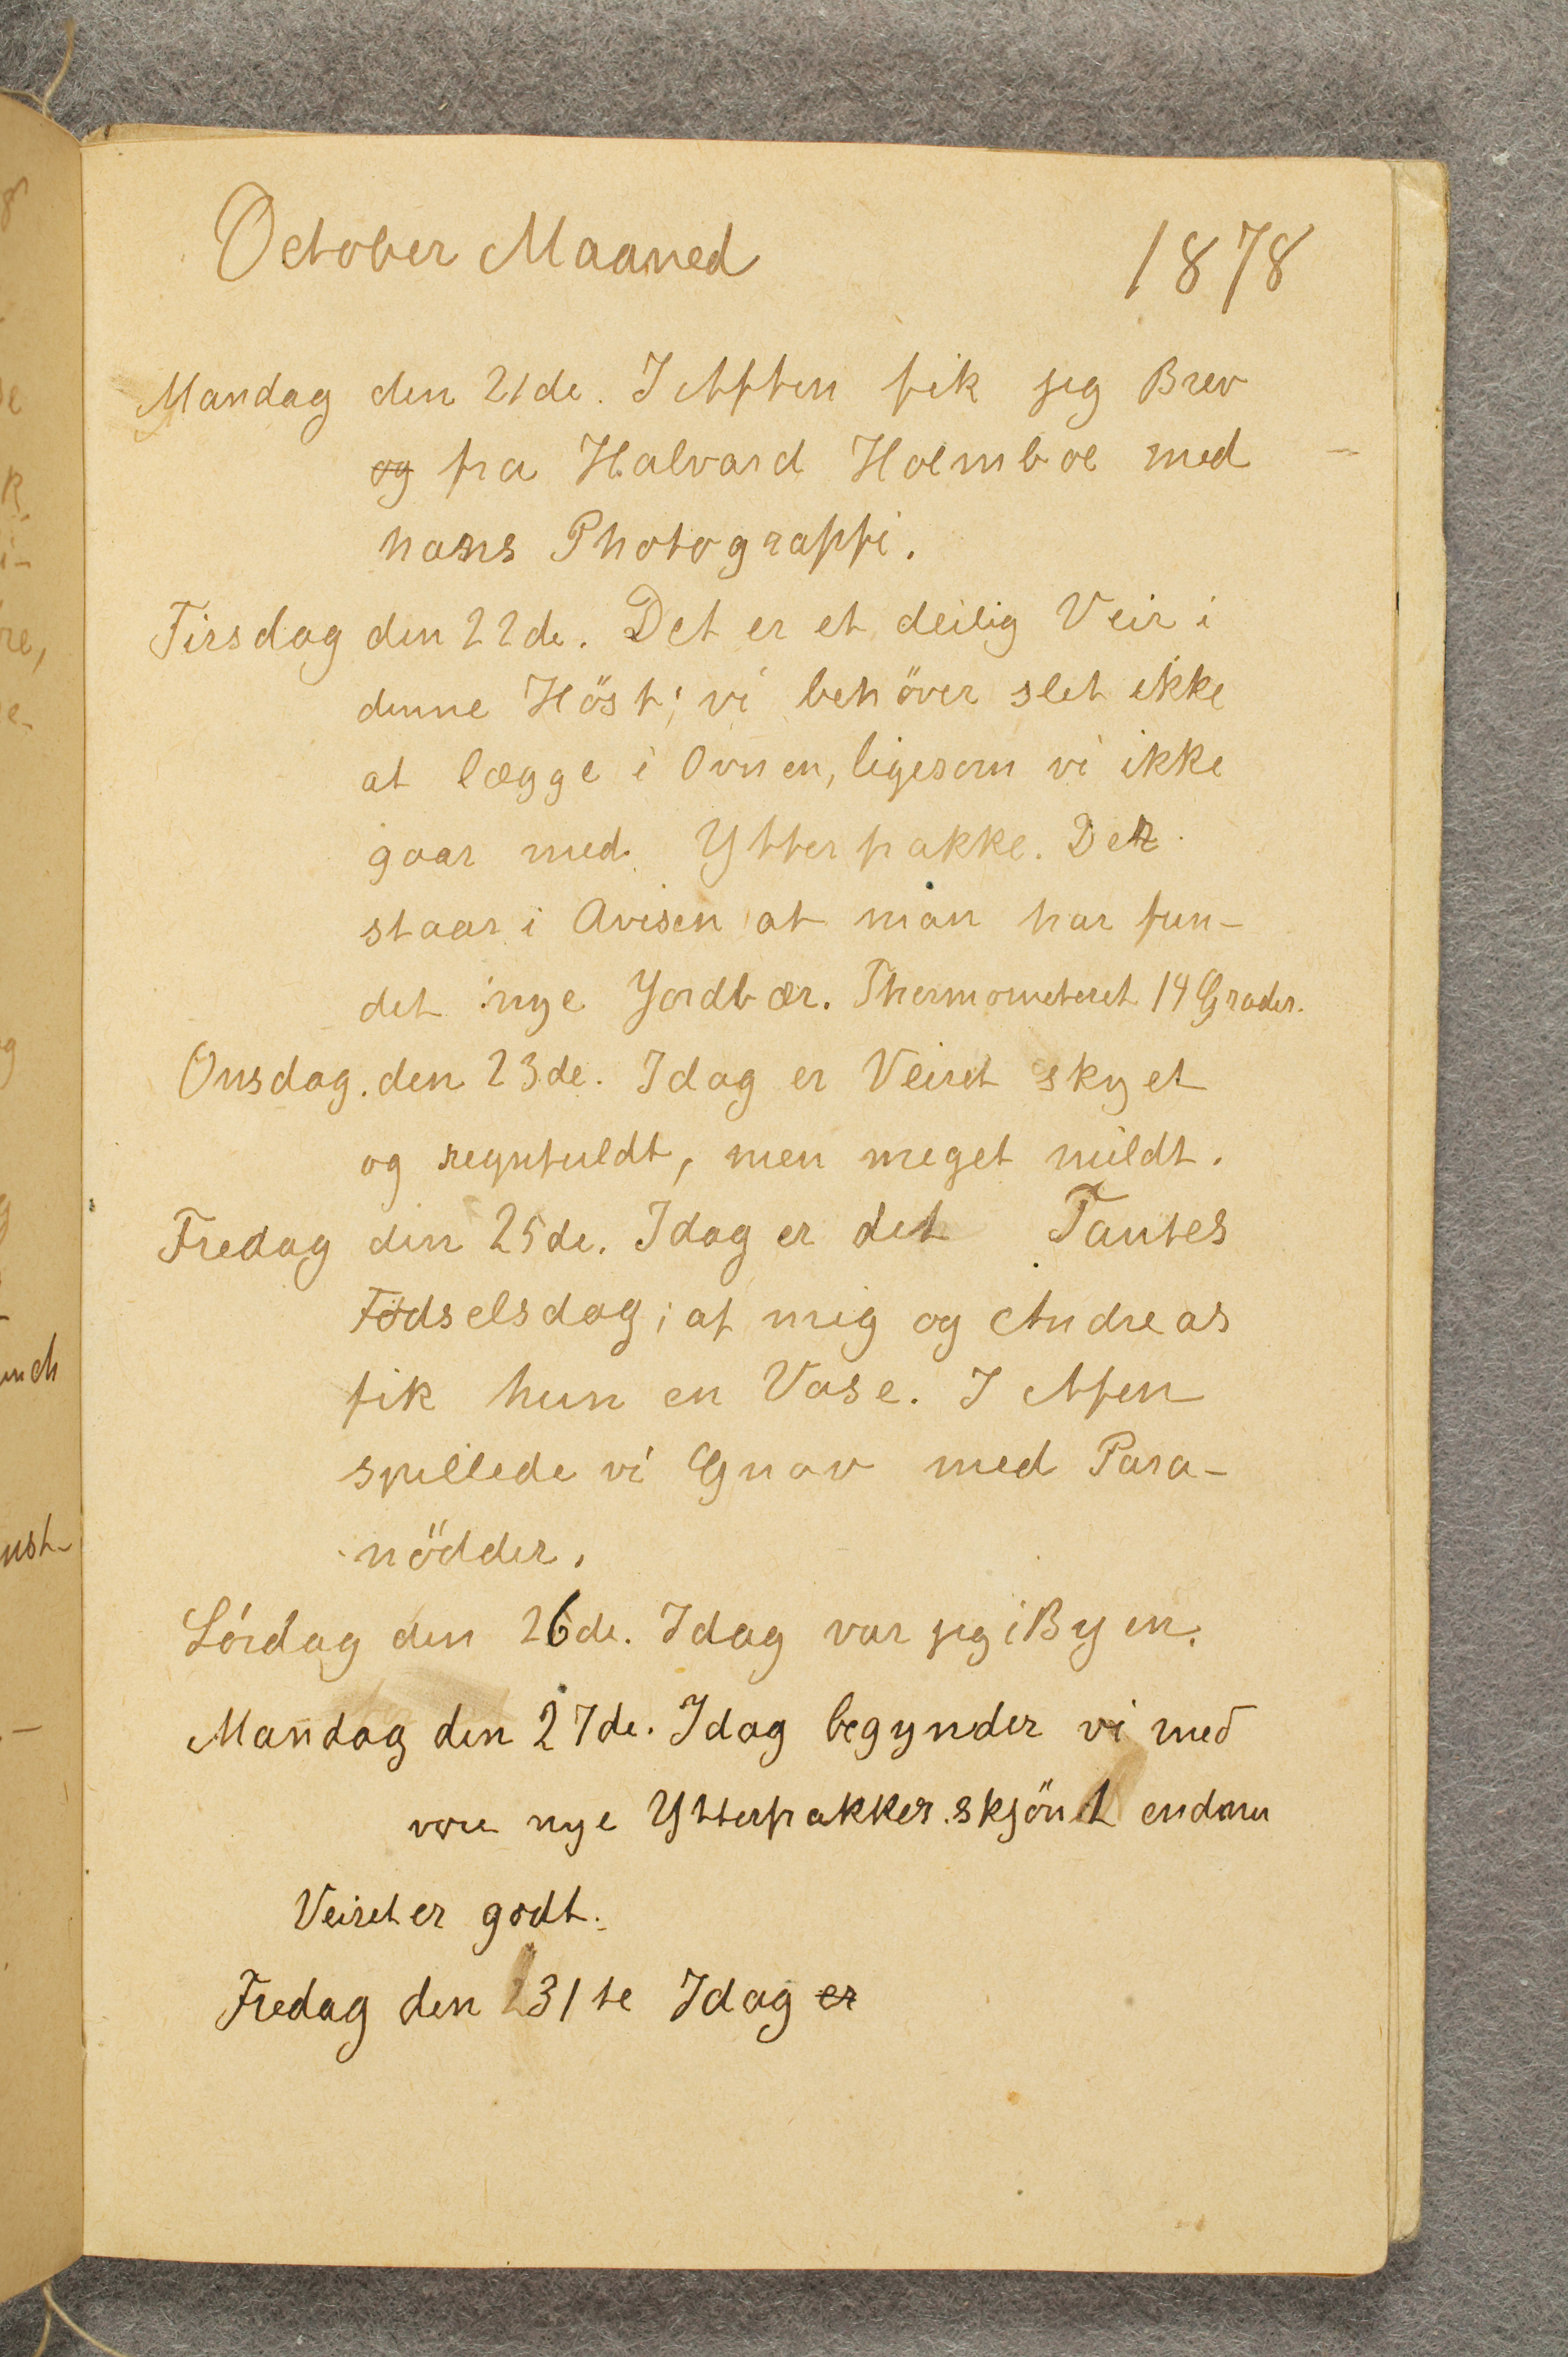 October Maaned 1878
Mandag den 21de. I Aften fik jeg Brev
og fra Halvard Holmboe med
hans Photograffi.
Tirsdag den 22de. Det er et deilig Veir i
denne Höst; vi behöver slet ikke
at lægge i Ovnen, ligesom vi ikke
gaar med Ytterfrakke. Det
staar i Avisen at man har fun-
det nye Jordbær. Thermometeret 14 Grader.
Onsdag. den 23de. Idag er Veiret skyet
og regnfuldt, men meget mildt.
Fredag den 25de. Idag er det Tantes
Födselsdag; af mig og Andreas
fik hun en Vase. I Afen
spillede vi Gnav med Para-
nödder.
Lördag den 26de. Idag var jeg i Byen.
Mandag den 27de. Idag begynder vi med
vore nye Ytterfrakker skjönt endnu
Veiret er godt.
Fredag den 31te Idag er